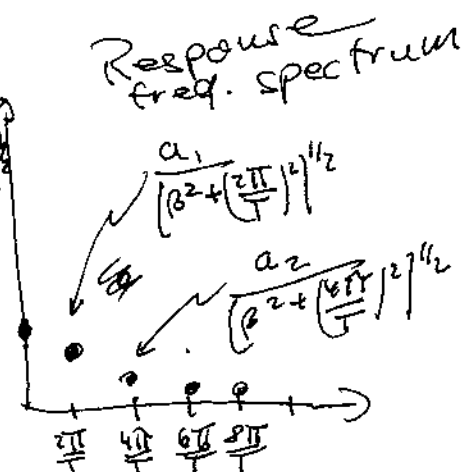 Response
freq. spectrum
a₁
[β²+(2π/T)²]^1/2
a₂
[β²+(4π/T)²]^1/2
2π/T 4π/T 6π/T 8π/T